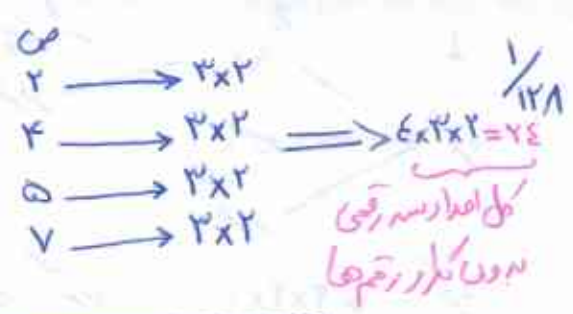 ص
۲ → ۳×۲
۴ → ۳×۲
۵ → ۳×۲
۷ → ۳×۲
⇒ ٤×۳×۲=۲٤
۱/۱۲۸
کل اعداد سه رقمی
بدون تکرار رقم‌ها